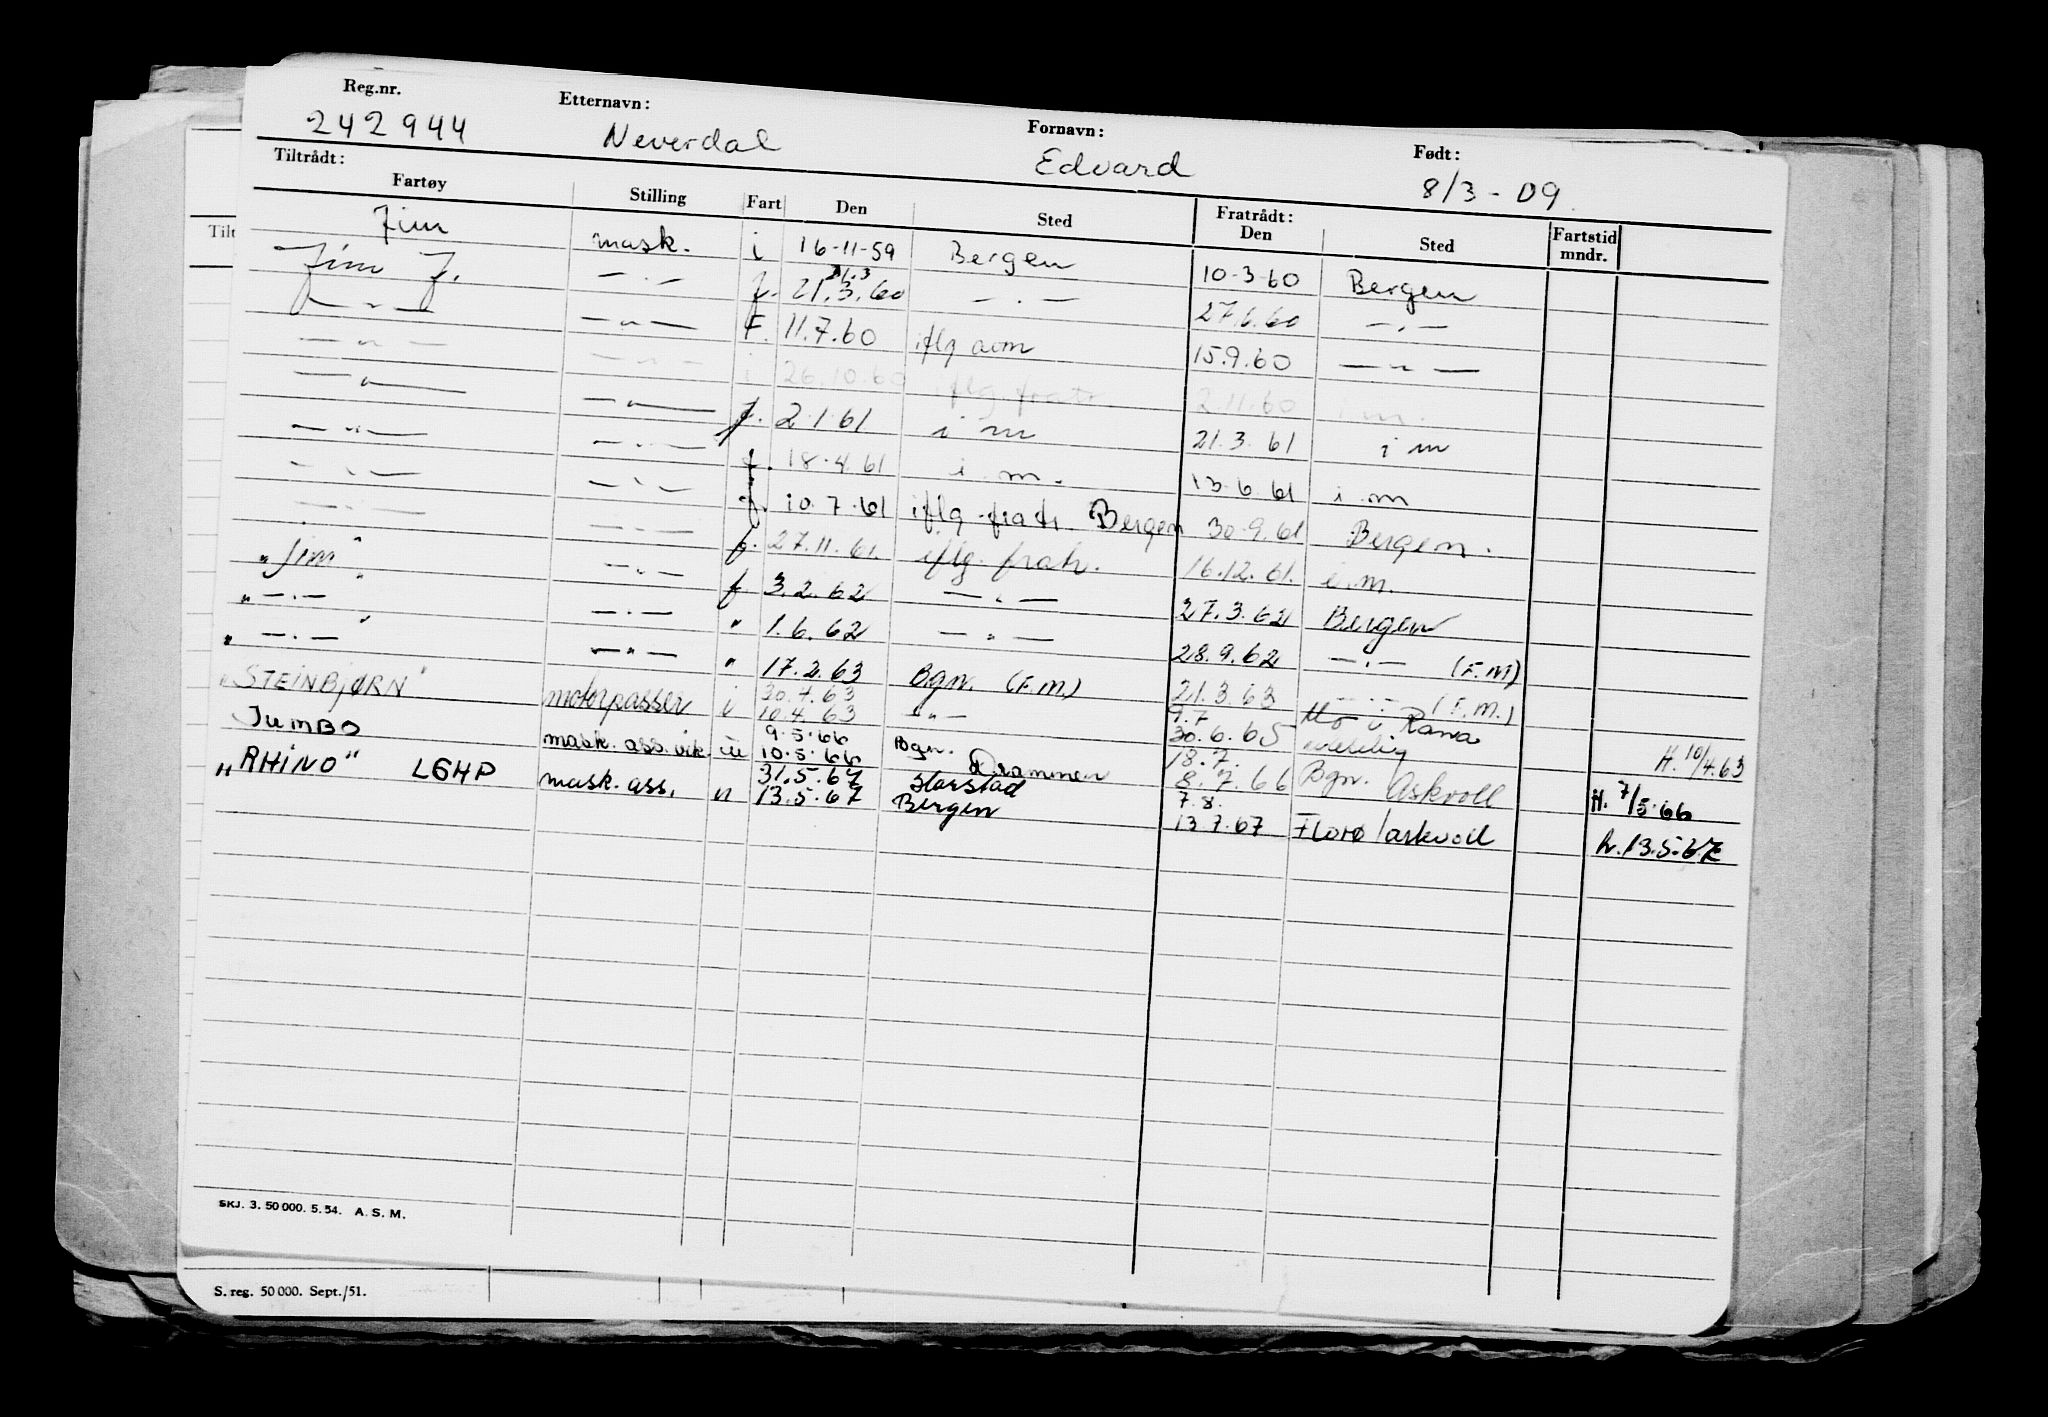 Reg.nr. Etternavn: Fornavn: Født:
242944 Neverdal Edvard 8/3 - 09
Tiltrådt: Fratrådt:
Fartøy Stilling Fart Den Sted Den Sted Fartstid mndr.
Jim mask. i 16-11-59 Bergen 10-3-60 Bergen
21.3
Jim J. —.— f. 21.3.60 —.— 27.6.60 —.—
—"— —"— F. 11.7.60 iflg avm 15.9.60 —"—
—"— —"— i 26.10.60 iflg. fratr 2.11.60 i m.
—"— —"— f. 2.1.61 i m 21.3.61 i m
—"— —"— f. 18.4.61 i m. 13.6.61 i m
—"— —"— f. 10.7.61 iflg fratr Bergen 30.9.61 Bergen.
—"— —"— f. 27.11.61. iflg. fratr. 16.12.61. i.m.
"Jim" —"— f 3.2.62 —"— 27.3.62 Bergen
"—.—" —.— " 1.6.62 —"— 28.9.62 —.— (F.M)
"—.—" —"— " 17.2.63 Bgn. (F.M.) 21.3.63 —"— (F.M.)
"STEINBJØRN" motorpasser i 30.4.63 —"— 9.7 Mo i Rana
10.4.63 30.6.65 H. 10/4.63
JUMBO mask. ass. vik. 9.5.66 Bgn. 18.7.
10.5.66 Drammen 8.7.66 Bgn. Askvoll H. 7/5.66
"RHINO" LGHP mask. ass. 31.5.67 Harstad 7.8.
13.5.67 Bergen 13.7.67 Florø/askvoll h. 13.5.67
SKJ. 3. 50 000. 5. 54. A. S. M.
S. reg. 50 000. Sept./51.
Tilt